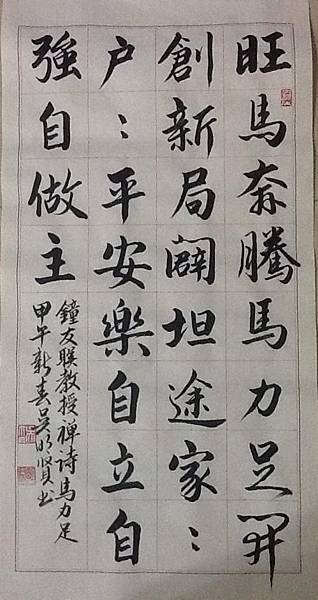 旺馬奔騰馬力足開
創新局闢坦途家：
户：平安樂自立自
強自做主
鐘友聯教授禪詩馬力足
甲午新春吳明賢书